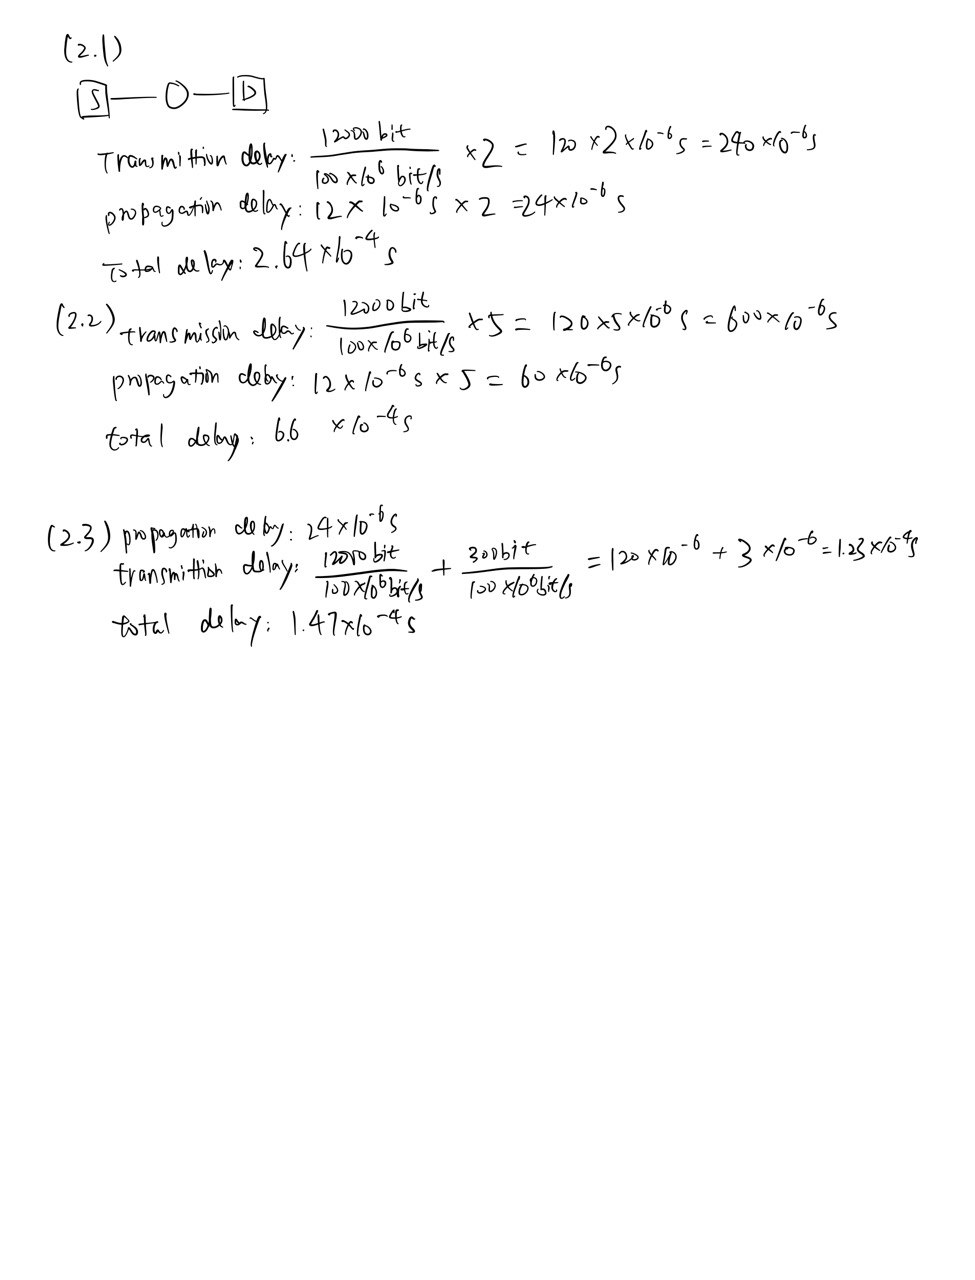 (2.1)
S D
Transmittion delay: 12000 bit / 100×10⁶ bit/s ×2 = 120 ×2×10⁻⁶ s = 240 ×10⁻⁶s
propagation delay: 12× 10⁻⁶s × 2 =24×10⁻⁶ s
Total delay: 2.64 ×10⁻⁴ s
(2.2) transmission delay: 12000 bit / 100×10⁶ bit/s ×5 = 120×5×10⁻⁶ s = 600×10⁻⁶s
propagation delay: 12×10⁻⁶ s × 5 = 60 ×10⁻⁶s
total delay: 6.6 ×10⁻⁴s
(2.3) propagation delay: 24×10⁻⁶s
transmittion delay: 12000 bit / 100×10⁶bit/s + 300bit / 100 ×10⁶bit/s = 120 ×10⁻⁶ + 3 ×10⁻⁶ = 1.23 ×10⁻⁴s
total delay: 1.47×10⁻⁴ s